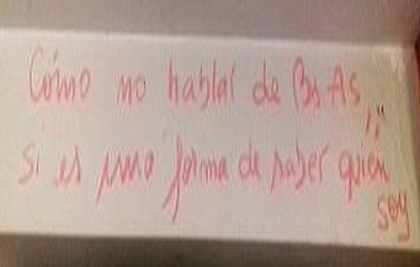 Cómo no hablar de Bs As
si es una forma de saber quién
soy